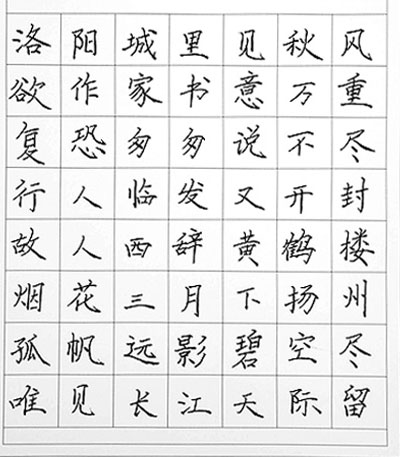 洛阳城里见秋风
欲作家书意万重
复恐匆匆说不尽
行人临发又开封
故人西辞黄鹤楼
烟花三月下扬州
孤帆远影碧空尽
唯见长江天际留